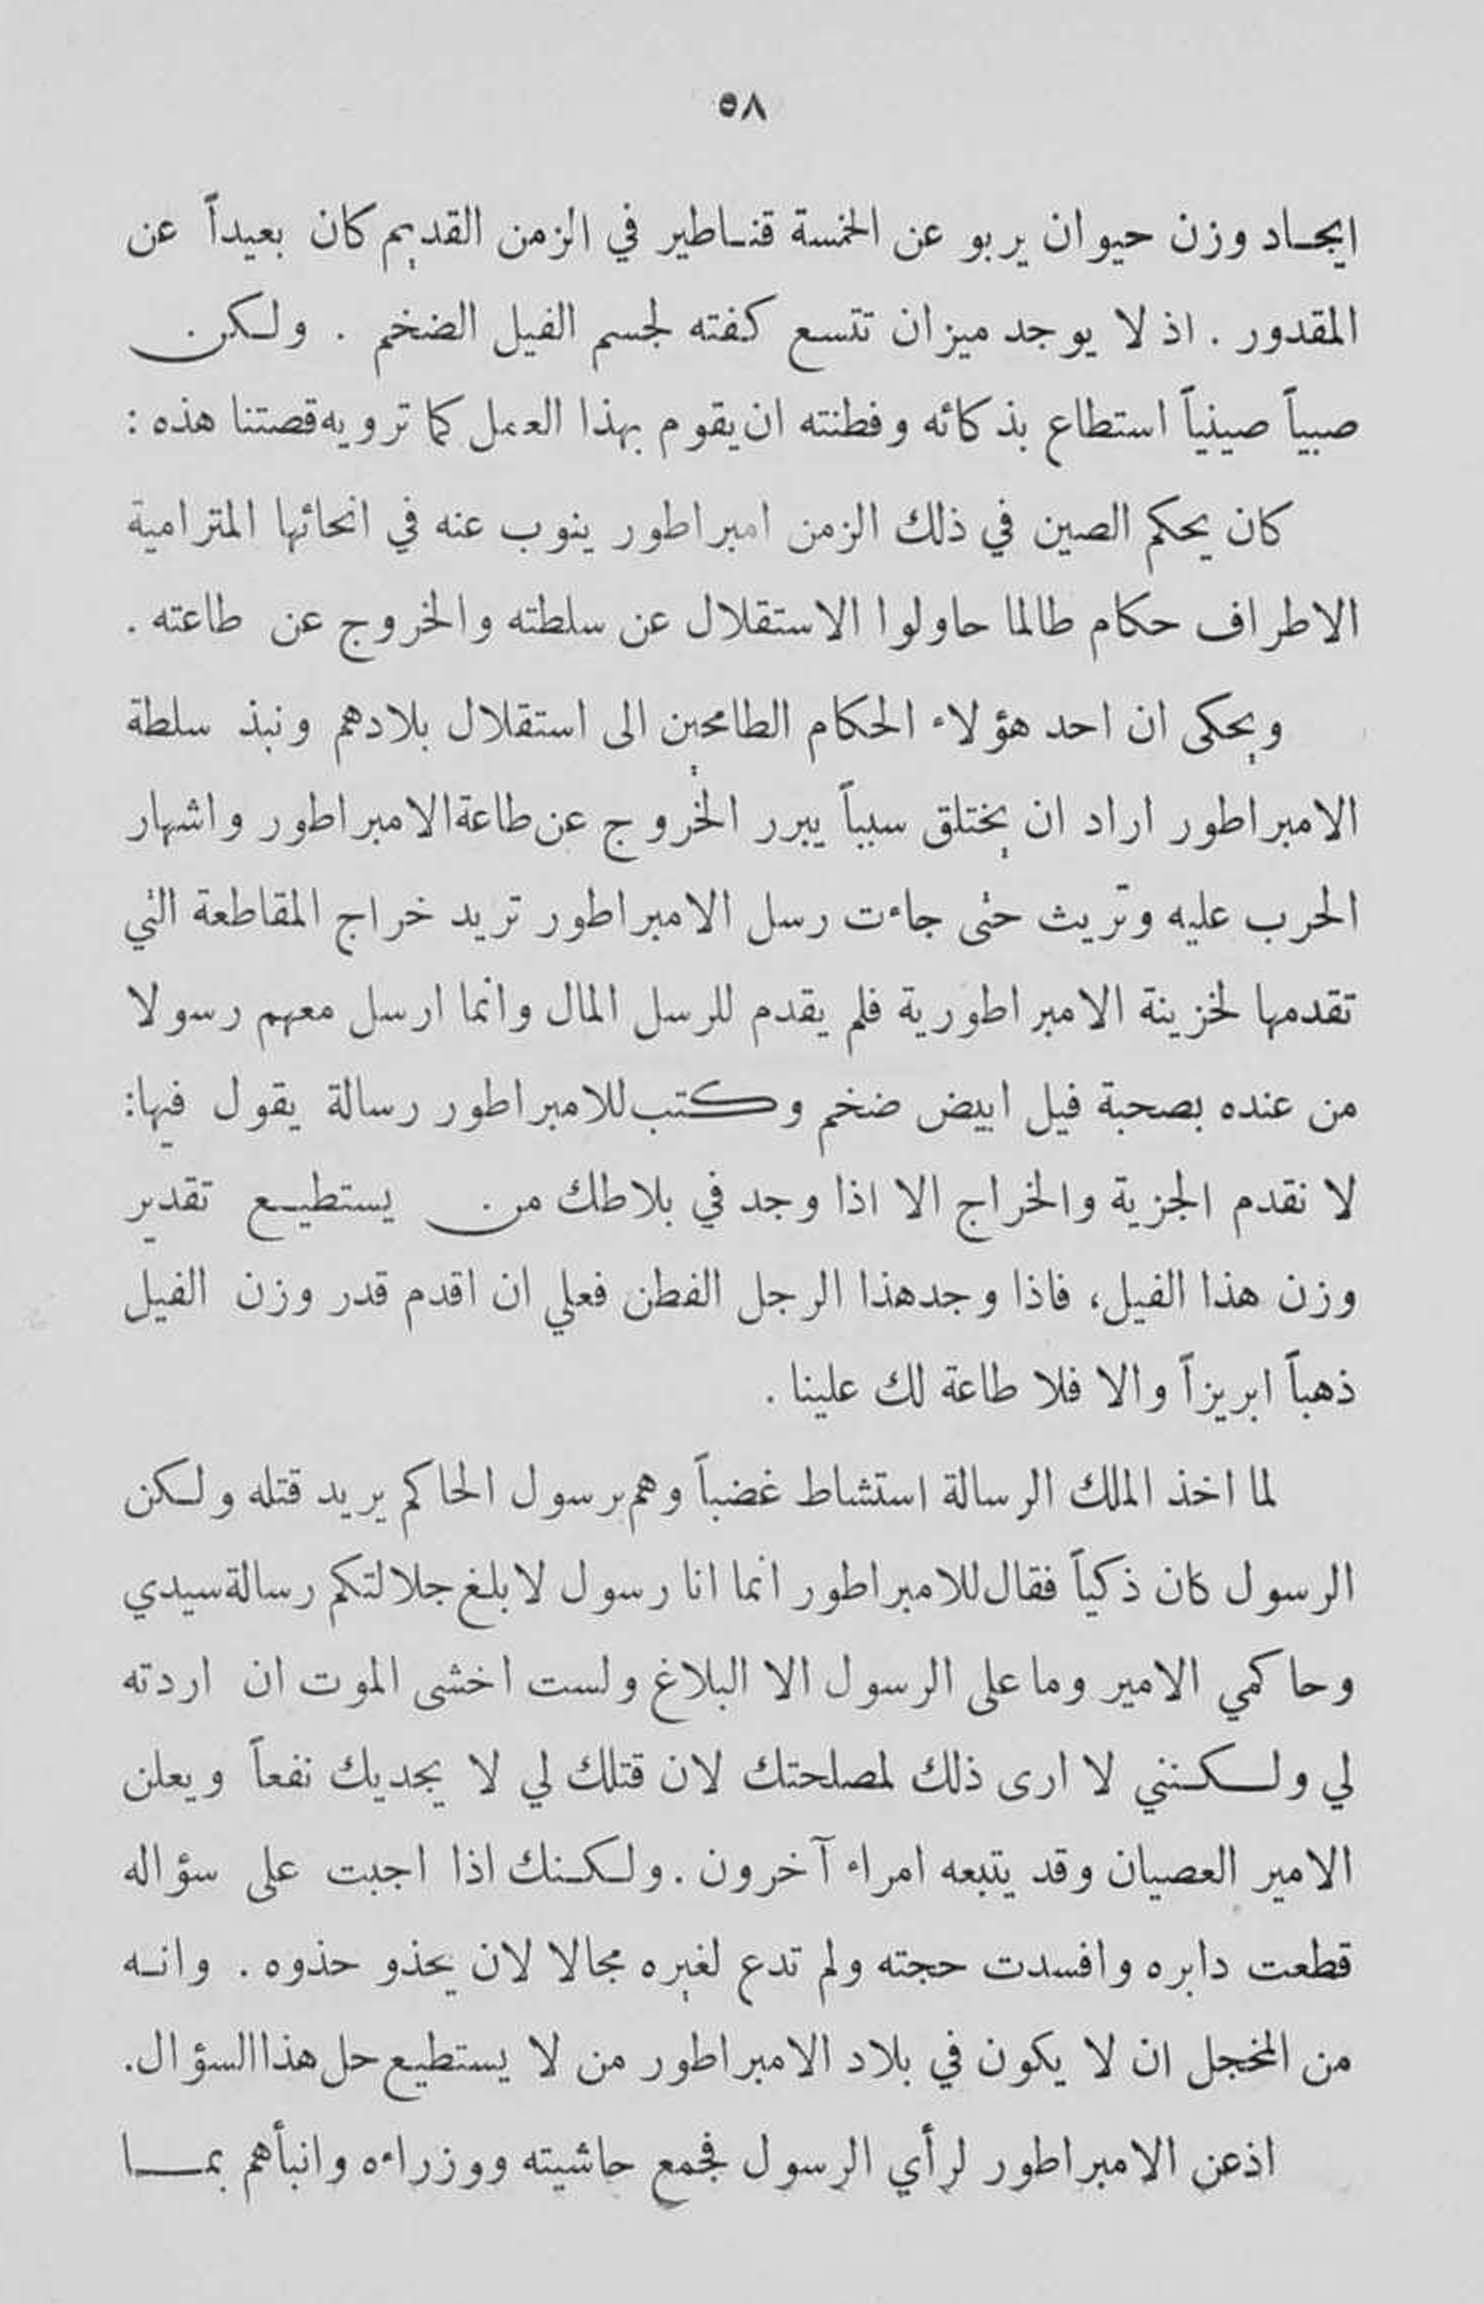 ٥٨
ايجاد وزن حيوان يربو عن الخمسة قناطير في الزمن القديم كان بعيداً عن
المقدور . اذ لا يوجد ميزان تتسع كفته لجسم الفيل الضخم . ولكن
صبياً صينياً استطاع بذكائه وفطنته ان يقوم بهذا العمل كما ترويه قصتنا هذه :
كان يحكم الصين في ذلك الزمن امبراطور ينوب عنه في انحائها المترامية
الاطراف حكام طالما حاولوا الاستقلال عن سلطته والخروج عن طاعته .
ويحكى ان احد هؤلاء الحكام الطامحين الى استقلال بلادهم ونبذ سلطة
الامبراطور اراد ان يختلق سبباً يبرر الخروج عن طاعة الامبراطور واشهار
الحرب عليه وتريث حتى جاءت رسل الامبراطور تريد خراج المقاطعة التي
تقدمها لخزينة الامبراطورية فلم يقدم للرسل المال وانما ارسل معهم رسولا
من عنده بصحبة فيل ابيض ضخم وكتب للامبراطور رسالة يقول فيها:
لا نقدم الجزية والخراج الا اذا وجد في بلاطك من يستطيع تقدير
وزن هذا الفيل، فاذا وجد هذا الرجل الفطن فعلي ان اقدم قدر وزن الفيل
ذهباً ابريزاً والا فلا طاعة لك علينا .
لما اخذ الملك الرسالة استشاط غضباً وهم برسول الحاكم يريد قتله ولكن
الرسول كان ذكياً فقال للامبراطور انما انا رسول لابلغ جلالتكم رسالة سيدي
وحاكمي الامير وما على الرسول الا البلاغ ولست اخشى الموت ان اردته
لي ولكنني لا ارى ذلك لمصلحتك لان قتلك لي لا يجديك نفعاً ويعلن
الامير العصيان وقد يتبعه امراء آخرون . ولكنك اذا اجبت على سؤاله
قطعت دابره وافسدت حجته ولم تدع لغيره مجالا لان يحذو حذوه . وانه
من المخجل ان لا يكون في بلاد الامبراطور من لا يستطيع حل هذا السؤال.
اذعن الامبراطور لرأي الرسول فجمع حاشيته ووزراءه وانبأهم بما